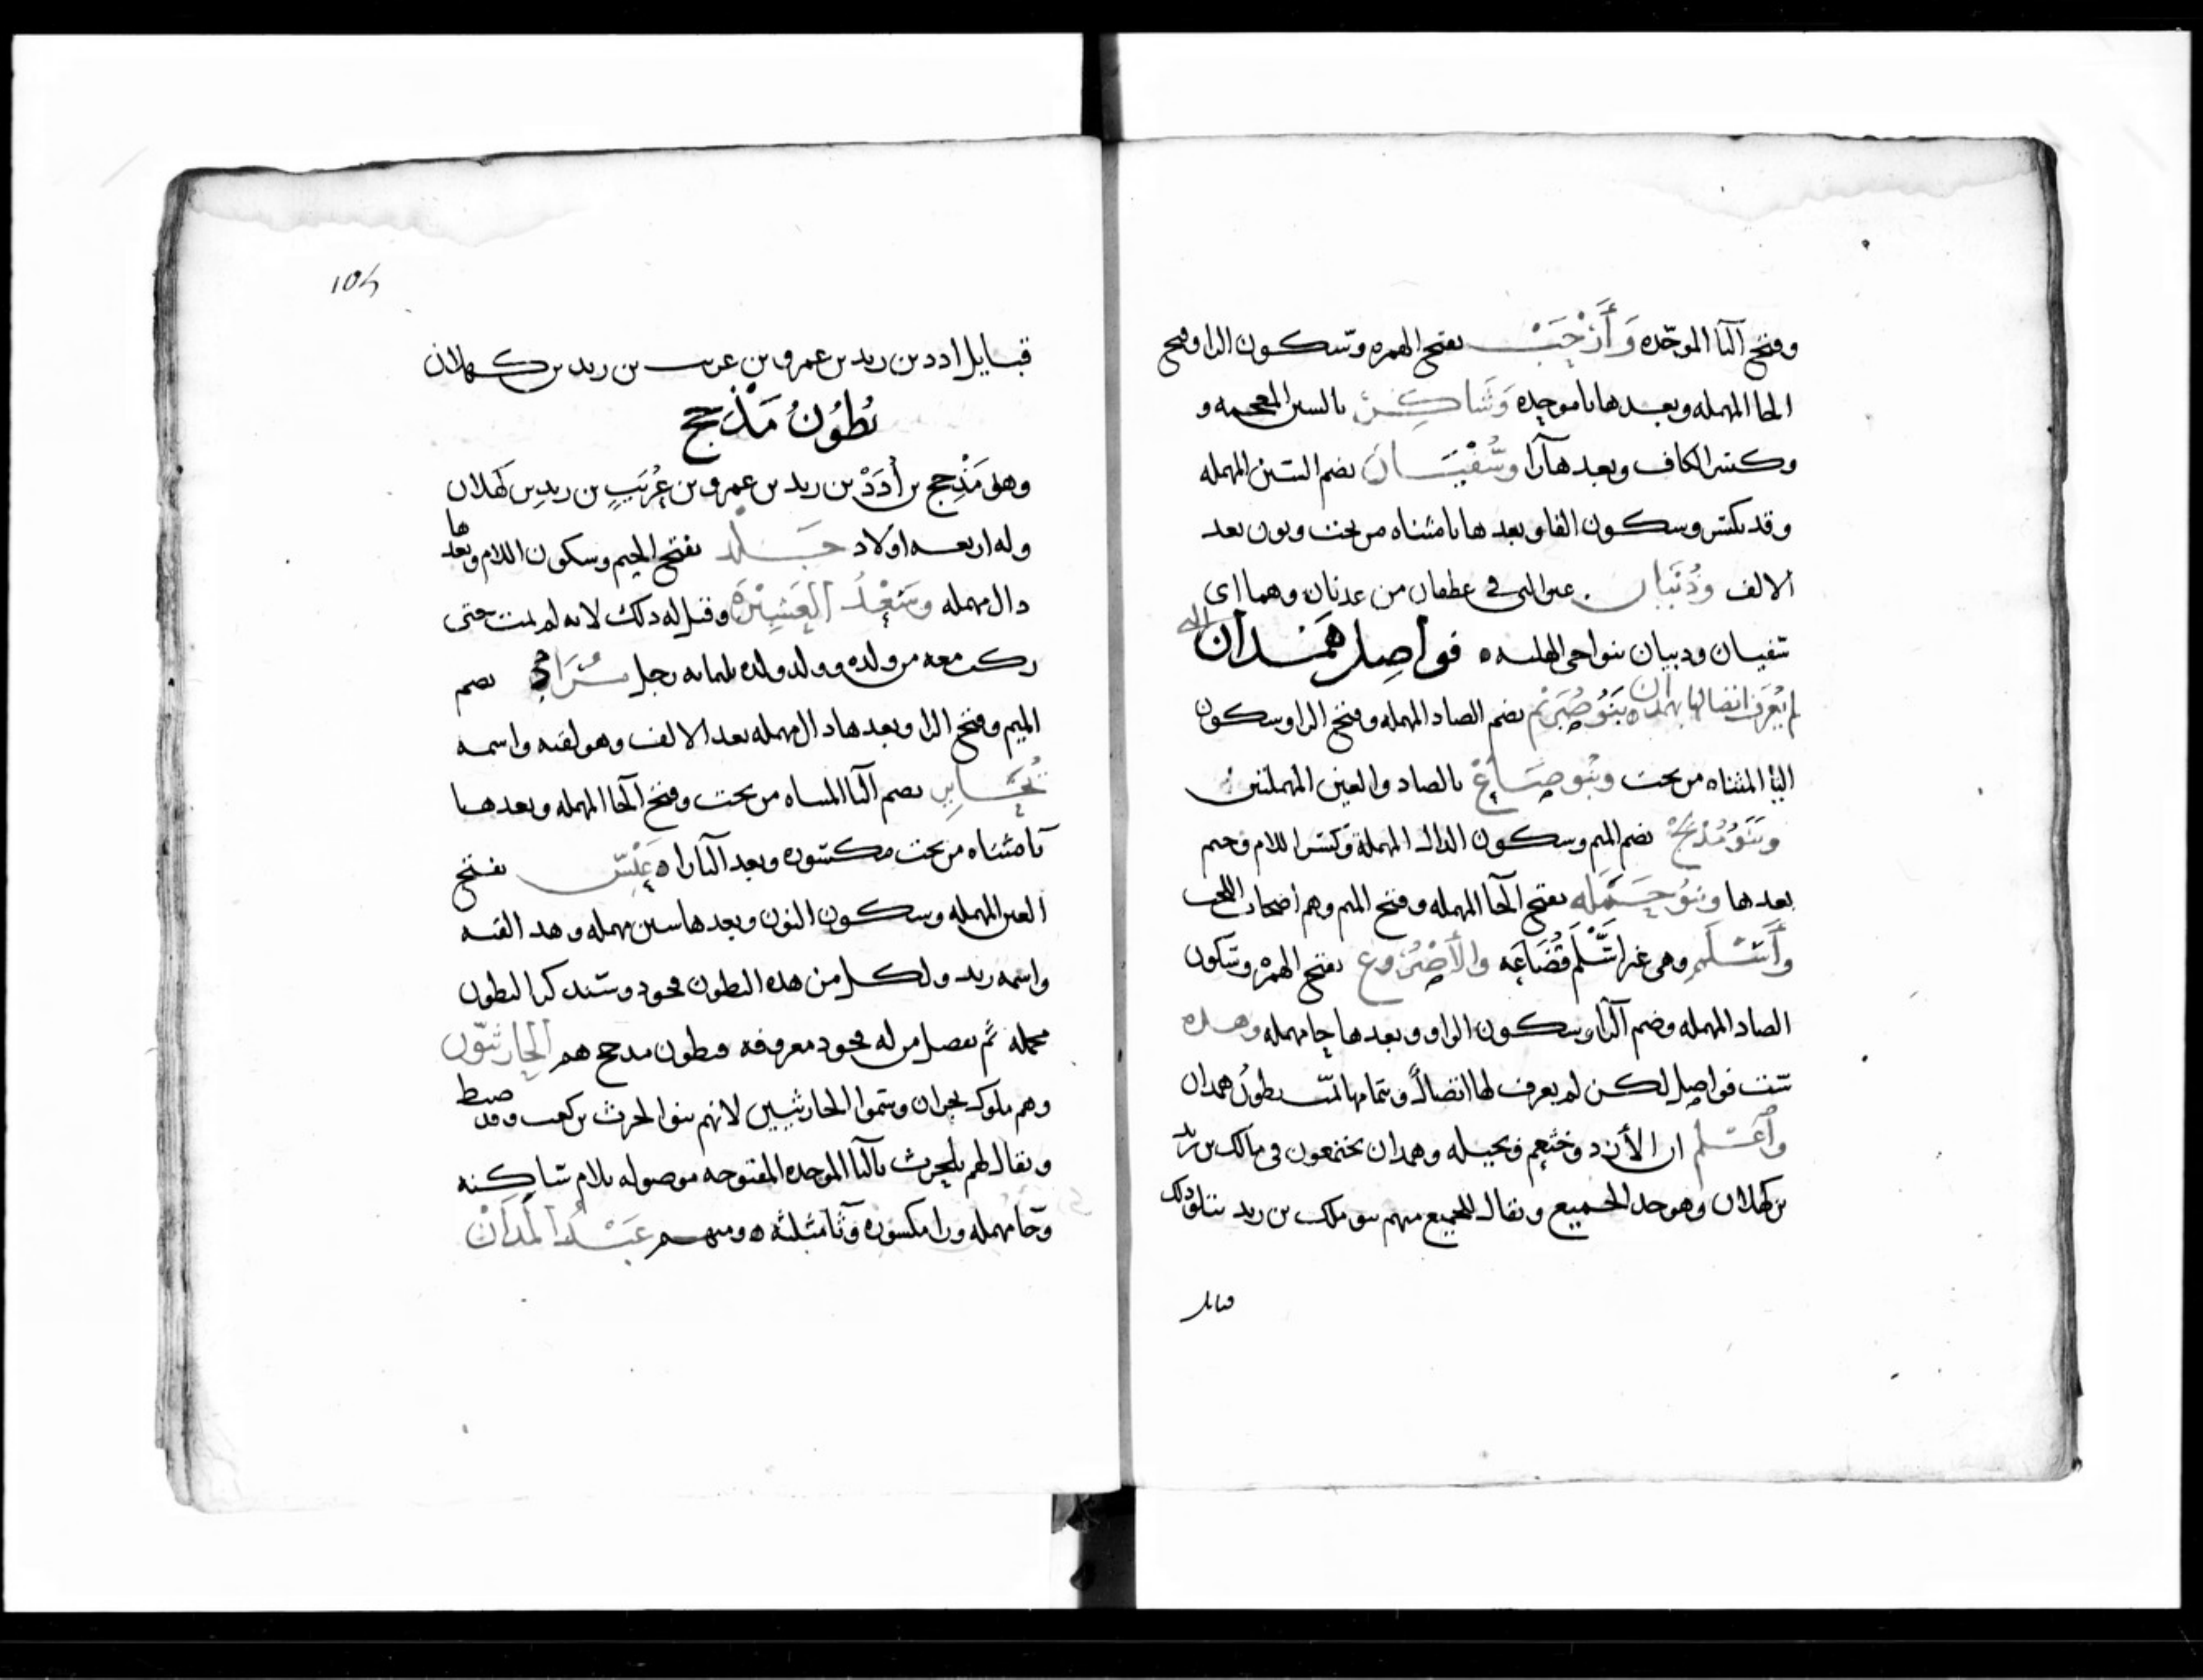 وفتح البا الموحده وَأَرْحَبْ بفتح الهمزه وسكون الرا وفتح
الحا المهمله وبعدها با موحده وَشَاكِرْ بالشين المعجمه و
وكسر الكاف وبعدها را وسُفْيَان بضم السين المهمله
وقد تكسر وسكون الفا وبعدها يا مثناه من تحت ونون بعد
الالف وذُبْيَان غير التى فى غطفان من عدنان وهما اى
سفيان وذبيان بنواحى فواصل همدان التى
لم يُعرف اتصالها بهمدان بَنُو صُرَيْم بضم الصاد المهمله وفتح الرا وسكون
اليا المثناه من تحت وبنو صَاع بالصاد والعين المهملتين
وبَنُو مُدْلِج بضم الميم وسكون الدال المهملة وكسر اللام وجيم
بعدها وبنو حَمَلَه بفتح الحا المهمله وفتح الميم وهم اصحاب
وأَسْلَم وهى غير اسْلَم قُضَاعَه والأَصْرُوح بفتح الهمزه وسكون
الصاد المهمله وضم الرا وسكون الواو وبعدها حا مهمله وهذه
ست فواصل لكن لم يعرف لها اتصالاً وتمامها تمت بطونُ همدان
وأعلم ان الأزد وخثعم وبجيله وهمدان يجتمعون فى مالك بن زيد
بن كهلان وهو جد الجميع ويقال للجميع منهم بنو ملك بن زيد يتلو ذلك
قبايل
104
قبايل ادد بن زيد بن عمرو بن عريب بن زيد بن كهلان
بُطُونُ مَذْحِج
وهو مَذْحِج بن أُدَدْ بن زيد بن عمرو بن عُرَيب بن زيد بن كهلان
وله اربعه اولاد جَلْد بفتح الجيم وسكون اللام وبعدها
دال مهمله وسَعْدُ العَشِيْرَه وقيل له ذلك لانه لم يمت حتى
ركب معه من ولده وولد ولده ثلثمايه رجل مُرَاد بضم
الميم وفتح الرا وبعدها دال مهمله بعد الالف وهو لقبه واسمه
يُحَابِر بضم اليا المثناه من تحت وفتح الحا المهمله وبعدها
يا مثناه من تحت مكسوره وبعد اليا را ه عَنْس بفتح
العين المهمله وسكون النون وبعدها سين مهمله وهذا لقبه
واسمه زيد ولكل من هذه البطون فخود وسنذكر البطون
مجمله ثم نفصل من له فخود معروفه فبطون مذحج هم الحَارثيّون
وهم ملوك نجران وسموا الحارثيين لانهم بنو الحرث بن كعب وقد ضبط
ويقال لهم بلحرث بالبا الموحده المفتوحه موصوله بلام ساكنه
وحا مهمله ورا مكسوره وثا مثلثه ه ومنهم عَبْدُ المَدَان